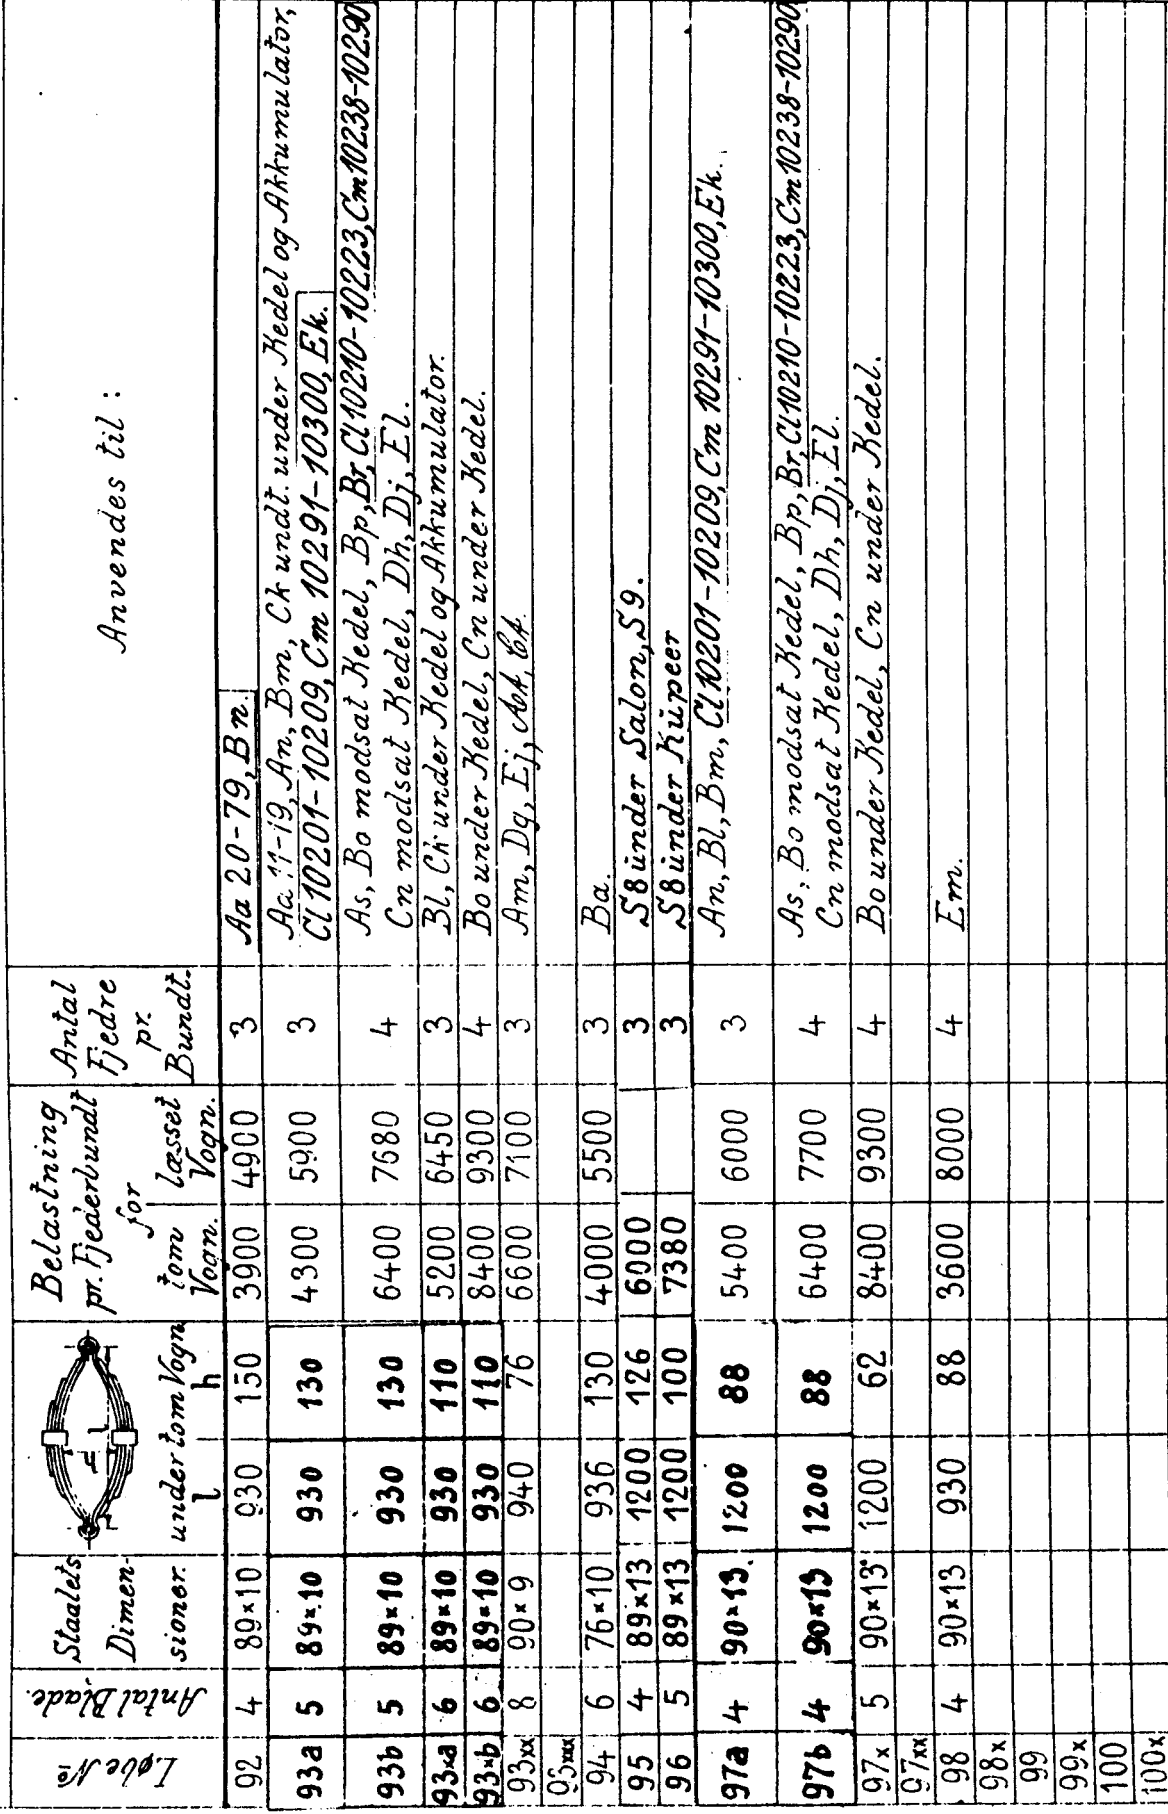 Løbe No
Antal Blade.
Staalets Dimen- sioner.
under tom Vogn
l h
Belastning pr. Fjederbundt for
tom Vogn. læsset Vogn.
Antal Fjedre pr. Bundt.
Anvendes til :
92 4 89×10 930 150 3900 4900 3 Aa 20-79, Bn.
93a 5 89×10 930 130 4300 5900 3 Aa 11-19, An, Bm, Ck undt. under Kedel og Akkumulator,
Cl 10201-10209, Cm 10291-10300, Ek.
93b 5 89×10 930 130 6400 7680 4 As, Bo modsat Kedel, Bp, Br, Cl 10210-10223, Cm 10238-10290
Cn modsat Kedel, Dh, Dj, El.
93×a 6 89×10 930 110 5200 6450 3 Bl, Ck under Kedel og Akkumulator.
93×b 6 89×10 930 110 8400 9300 4 Bo under Kedel, Cn under Kedel.
93xx 8 90×9 940 76 6600 7100 3 Am, Dg, Ej,
93xxx
94 6 76×10 936 130 4000 5500 3 Ba.
95 4 89×13 1200 126 6000 3 S8 under Salon, S9.
96 5 89×13 1200 100 7380 3 S8 under Kupeer
97a 4 90×13. 1200 88 5400 6000 3 An, Bl, Bm, Cl 10201-10209, Cm 10291-10300, Ek.
97b 4 90×13 1200 88 6400 7700 4 As, Bo modsat Kedel, Bp, Br, Cl 10210-10223, Cm 10238-10290
Cn modsat Kedel, Dh, Dj, El.
97x 5 90×13 1200 62 8400 9300 4 Bo under Kedel, Cn under Kedel.
97xx
98 4 90×13 930 88 3600 8000 4 Em.
98x
99
99x
100
100x